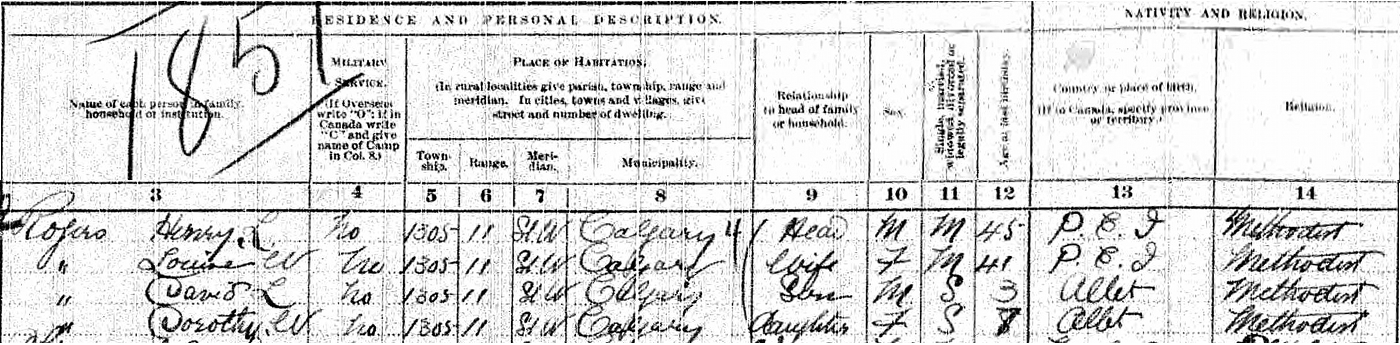 1851
RESIDENCE AND PERSONAL DESCRIPTION.
NATIVITY AND RELIGION.
Name of each person in family, household or institution.
MILITARY SERVICE. (If Overseas write "O"; if in Canada write "C" and give name of Camp in Col. 8.)
PLACE OF HABITATION.
(In rural localities give parish, township, range and meridian. In cities, towns and villages, give street and number of dwelling.
Town-ship.
Range.
Meri-dian.
Municipality.
Relationship to head of family or household.
Sex.
Single, married, widowed, divorced or legally separated.
Age at last birthday.
Country or place of birth. (If in Canada, specify province or territory.)
Religion.
3 4 5 6 7 8 9 10 11 12 13 14
Rogers Henry L. No 1305 11 St W Calgary 4 Head M M 45 P. E. I Methodist
" Louise W No 1305 11 St W Calgary Wife F M 41 P. E. I Methodist
" David L No 1305 11 St W Calgary Son M S 3 Methodist
" Dorothy W No 1305 11 St W Calgary Daughter F S Methodist